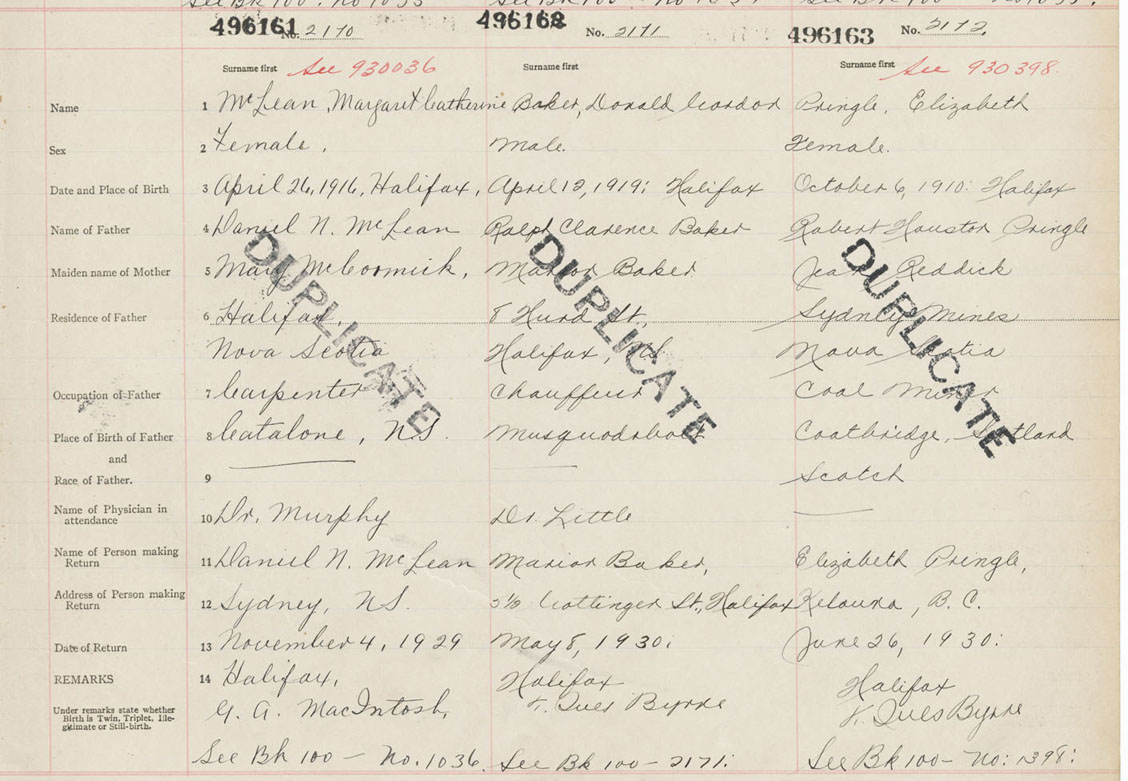 496161 No. 2170 496162 No. 2171 496163 No. 2172.
Surname first See 930036 Surname first Surname first See 930398.
Name 1 McLean, Margaret Catherine Baker, Donald Gordon Pringle, Elizabeth
Sex 2 Female. Male. Female.
Date and Place of Birth 3 April 26, 1916, Halifax, April 12, 1919: Halifax October 6, 1910: Halifax
Name of Father 4 Daniel N. McLean Ralph Clarence Baker Robert Houston Pringle
Maiden name of Mother 5 Mary McCormick, Marion Baker Jean Reddick
Residence of Father 6 Halifax 8 Hurd St. Sydney Mines
Nova Scotia Halifax, NS Nova Scotia
Occupation of Father 7 Carpenter Chauffeur Coal Miner
Place of Birth of Father 8 Catalone, N.S. Musquodoboit Coatbridge, Scotland
and
Race of Father. 9 Scotch
DUPLICATE DUPLICATE DUPLICATE
Name of Physician in
attendance 10 Dr. Murphy Dr. Little
Name of Person making
Return 11 Daniel N. McLean Marion Baker, Elizabeth Pringle,
Address of Person making
Return 12 Sydney, NS. Gottinger St., Halifax Kelowna, B.C.
Date of Return 13 November 4, 1929 May 8, 1930: June 26, 1930:
REMARKS 14 Halifax, Halifax Halifax
Under remarks state whether
Birth is Twin, Triplet, Ille-
gitimate or Still-birth. G. A. MacIntosh, Byrne Byrne
See Bk 100 - No. 1036. See Bk 100 - 2171: See Bk 100 - No: 1398: